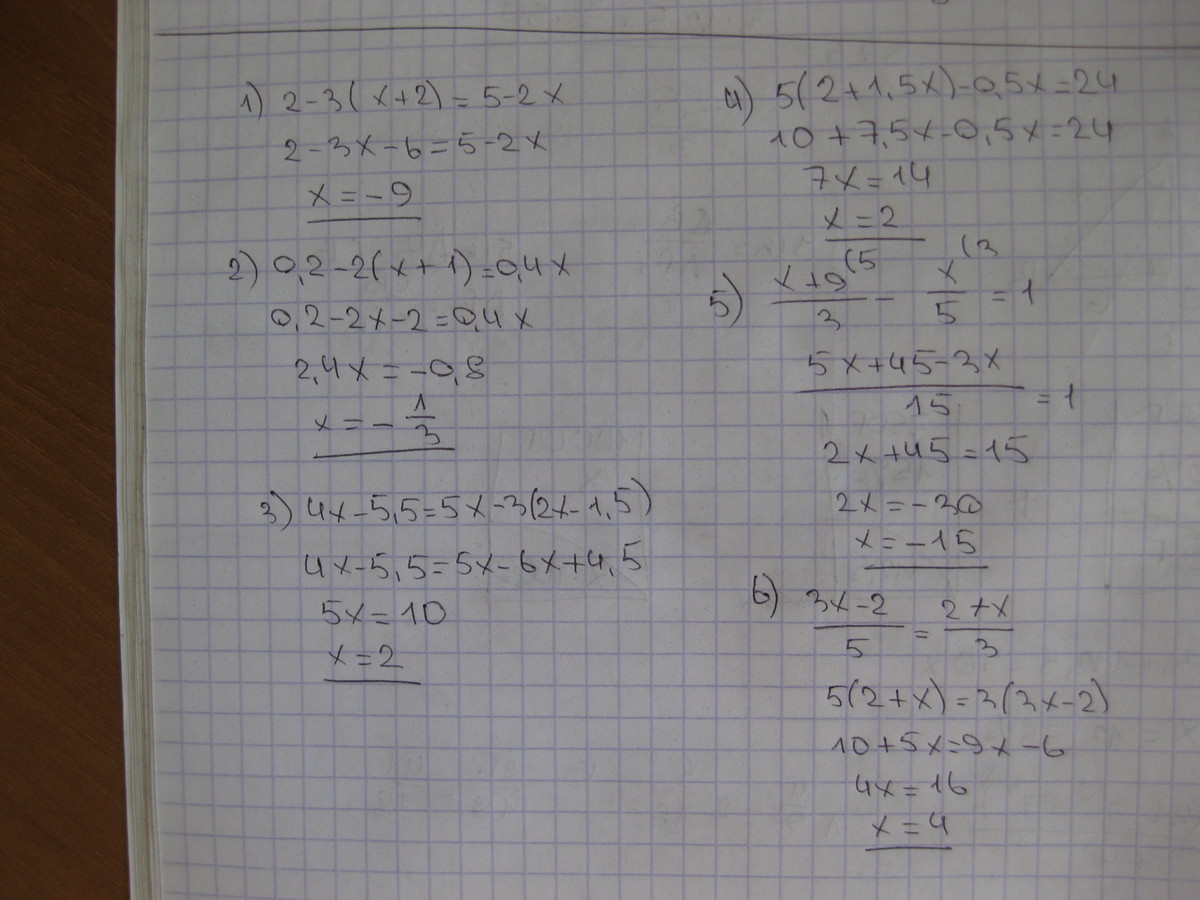 1) 2-3(x+2)=5-2x
2-3x-6=5-2x
x=-9
2) 0,2-2(x+1)=0,4x
0,2-2x-2=0,4x
2,4x=-0,8
x=-1/3
3) 4x-5,5=5x-3(2x-1,5)
4x-5,5=5x-6x+4,5
5x=10
x=2
4) 5(2+1,5x)-0,5x=24
10+7,5x-0,5x=24
7x=14
x=2
5) (x+9)/3 (5 - x/5 (3 =1
(5x+45-3x)/15=1
2x+45=15
2x=-30
x=-15
6) (3x-2)/5=(2+x)/3
5(2+x)=3(3x-2)
10+5x=9x-6
4x=16
x=4